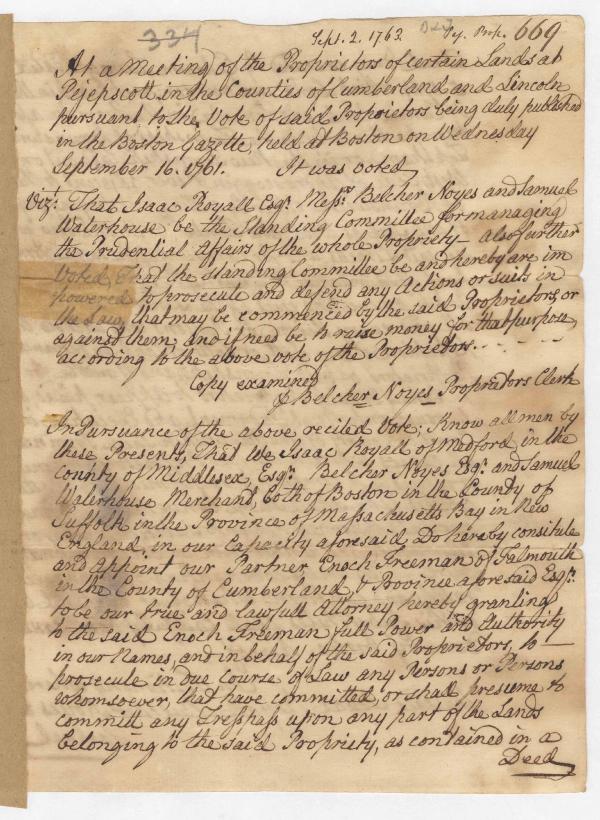 334 Sept. 2. 1763 Pej. Prop. 669
At a Meeting of the Proprietors of certain Lands at
Pejepscott in the Counties of Cumberland and Lincoln
pursuant to the Vote of said Proprietors being duly published
in the Boston Gazette, held at Boston on Wednesday
September 16. 1761. It was voted
Vizt. That Isaac Royall Esqr. Messrs. Belcher Noyes and Samuel
Waterhouse be the Standing Committee for managing
the Prudential Affairs of the whole Propriety – also further
Voted, That the standing Committee be and hereby are im
powered to prosecute and defend any Actions or suits in
the Law, that may be commenced by the said Proprietors, or
against them, and if need be to raise money for that purpose,
according to the above vote of the Proprietors. - - - - -
Copy examined
⅌ Belcher Noyes Proprietors Clerk
In Pursuance of the above recited Vote; Know all men by
these Presents, That We Isaac Royall of Medford, in the
County of Middlesex, Esqr. Belcher Noyes Esqr. and Samuel
Waterhouse Merchant, both of Boston in the County of
Suffolk in the Province of Massachusetts Bay in New
England, in our Capacity aforesaid, Do hereby constitute
and appoint our Partner Enoch Freeman of Falmouth
in the County of Cumberland, & Province aforesaid Esqr.
to be our true and lawfull Attorney hereby granting
to the said Enoch Freeman full Power and Authority
in our Names, and in behalf of the said Proprietors, to —
prosecute in due course of Law any Persons or Persons
whomsoever, that have committed, or shall presume to
committ any Tresspass upon any part of the Lands
belonging to the said Propriety, as contained in a
Deed